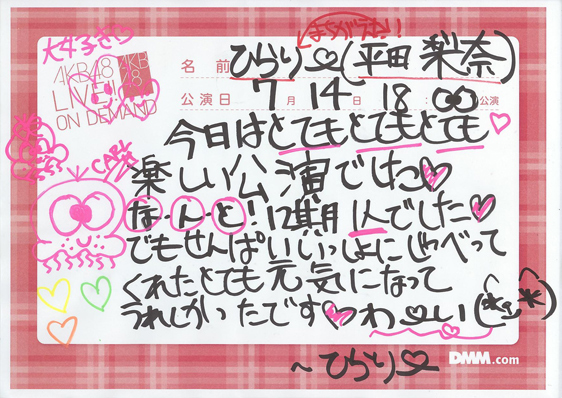 大好きっ
まちがえない
AKB48
LIVE!!
ON DEMAND
AKB
48
名 前 ひらり♡(平田 梨奈)
公演日 7月 14日 18:00 公演
今日はとてもとてもとても♡
楽しい公演でした♡
な・ん・と!12期1人でした♡
でもせんぱいいっしょにしゃべって
くれたとても元気になって
うれしかったです♡わーい(*^_^*)
〜ひらり♡
DMM.com